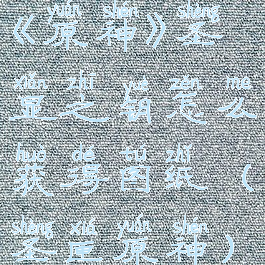 yuán shén shèng
《原神》圣
xiǎn zhī zěn me
显之 怎么
huò dé tú zhǐ
获得图纸（
shèng xiǎn yuán shén
圣显原神）